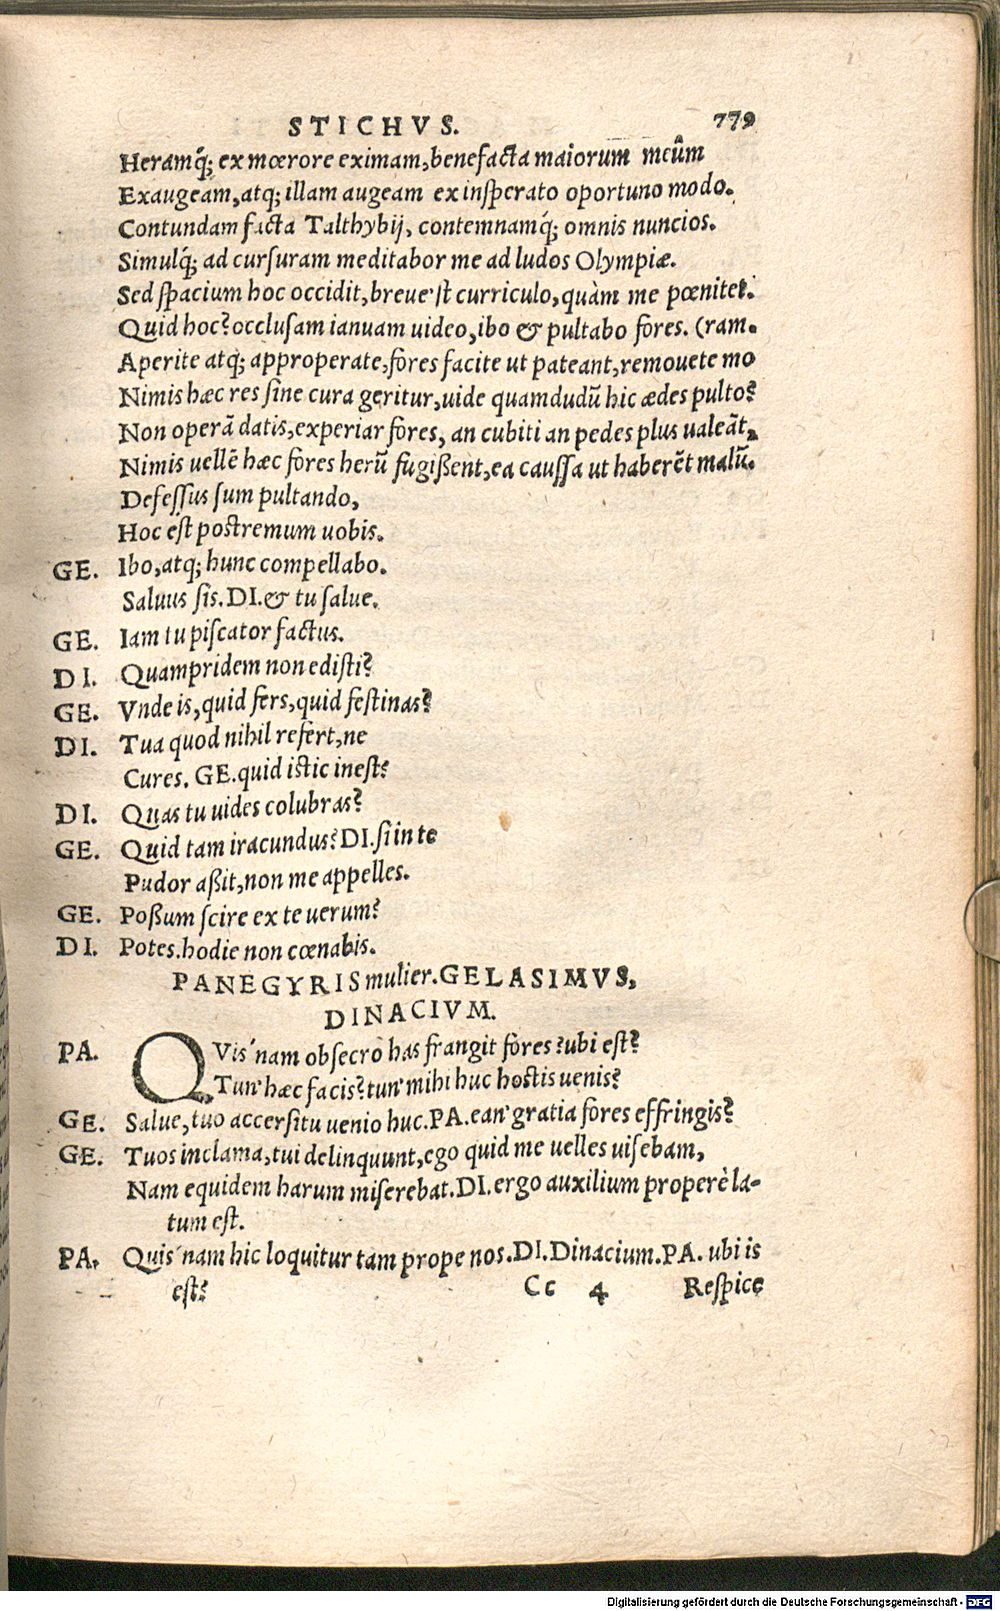 STICHVS. 779
Heramq́; ex mœrore eximam, benefacta maiorum meûm
Exaugeam, atq; illam augeam ex insperato oportuno modo.
Contundam facta Talthybij, contemnamq́; omnis nuncios.
Simulq́; ad cursuram meditabor me ad ludos Olympiæ.
Sed spacium hoc occidit, breue'st curriculo, quàm me pœnitet.
Quid hoc? occlusam ianuam uideo, ibo & pultabo fores. (ram.
Aperite atq; approperate, fores facite ut pateant, remouete mo
Nimis hæc res sine cura geritur, uide quamdudū hic ædes pulto?
Non operā datis, experiar fores, an cubiti an pedes plus ualeāt,
Nimis uellē hæc fores herū fugißent, ea caussa ut haberēt malū.
Defessus sum pultando,
Hoc est postremum uobis.
GE. Ibo, atq; hunc compellabo.
Saluus sis. DI. & tu salue.
GE. Iam tu piscator factus.
DI. Quampridem non edisti?
GE. Vnde is, quid fers, quid festinas?
DI. Tua quod nihil refert, ne
Cures. GE. quid istic inest?
DI. Quas tu uides colubras?
GE. Quid tam iracundus? DI. si in te
Pudor aßit, non me appelles.
GE. Poßum scire ex te uerum?
DI. Potes. hodie non cœnabis.
PANEGYRIS mulier. GELASIMVS,
DINACIVM.
PA. QVis'nam obsecro has frangit fores? ubi est?
Tun' hæc facis? tun' mihi huc hostis uenis?
GE. Salue, tuo accersitu uenio huc. PA. ean' gratia fores effringis?
GE. Tuos inclama, tui delinquunt, ego quid me uelles uisebam,
Nam equidem harum miserebat. DI. ergo auxilium properè la-
tum est.
PA. Quis'nam hic loquitur tam prope nos. DI. Dinacium. PA. ubi is
est? Cc 4 Respice
Digitalisierung gefördert durch die Deutsche Forschungsgemeinschaft - DFG